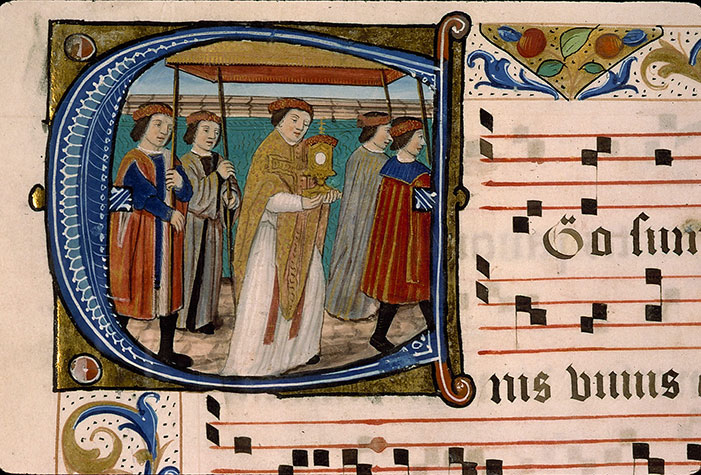 Go sum
nis viuus